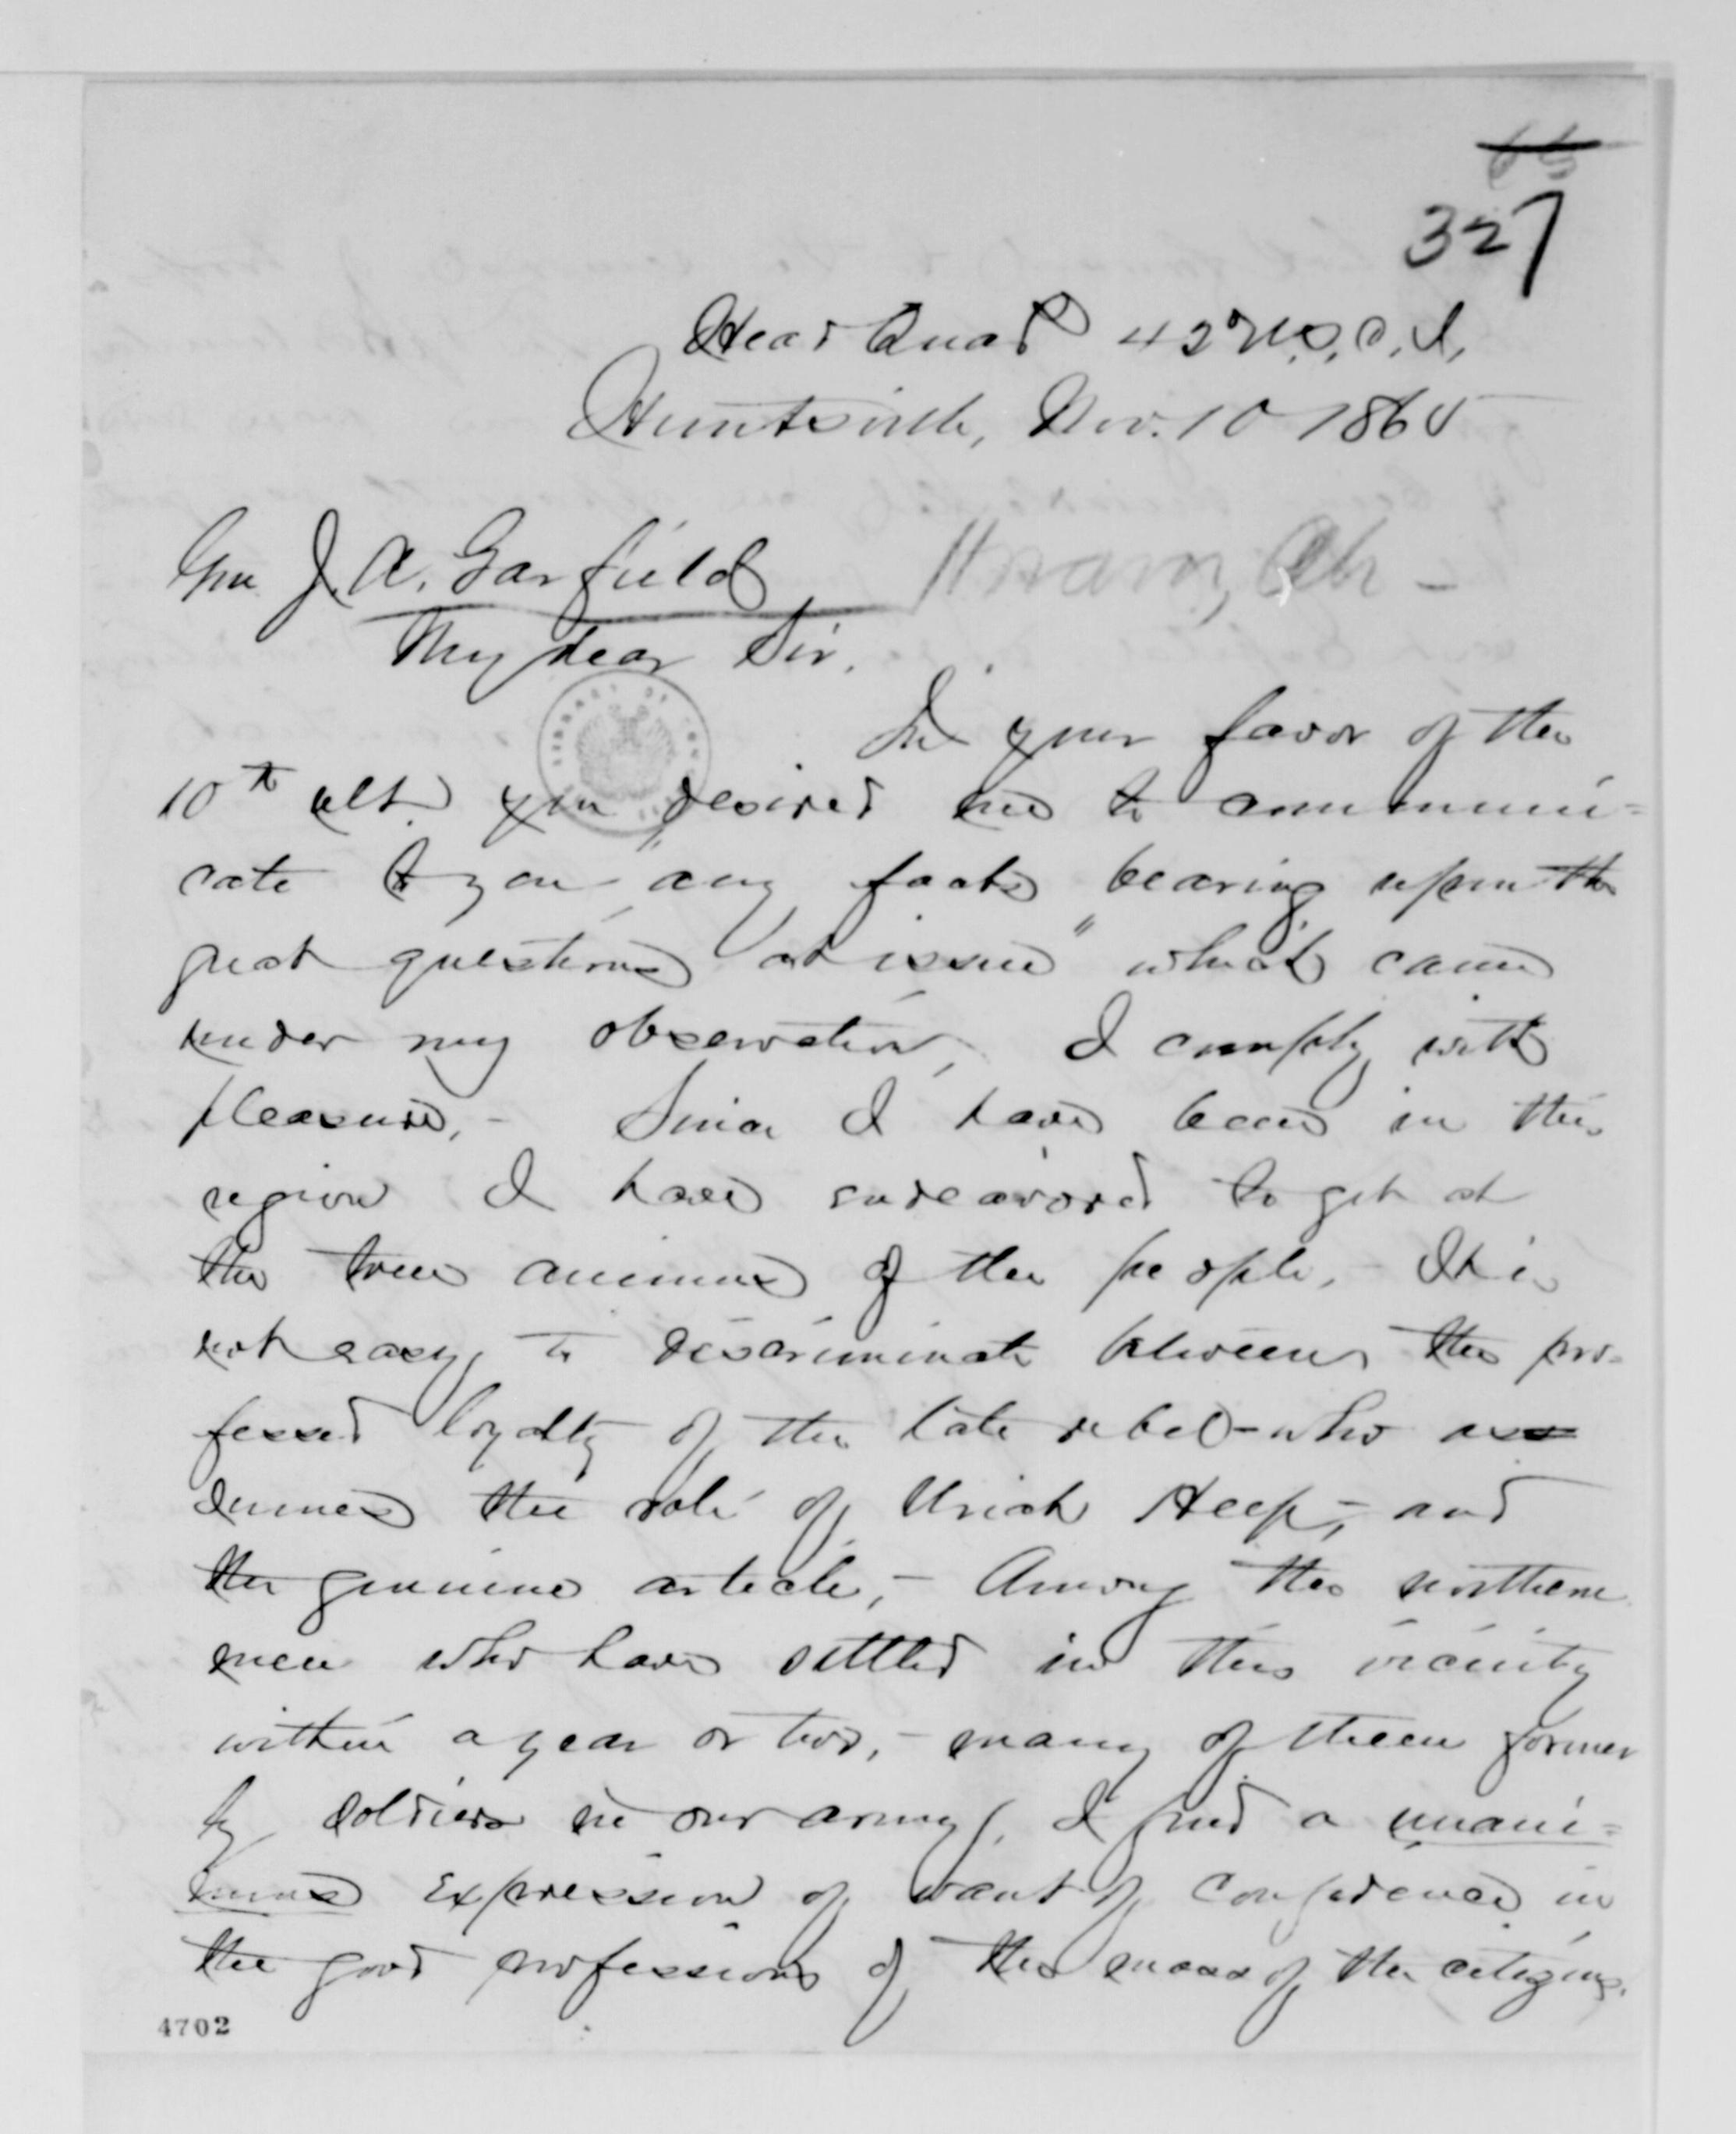 327
Head Quar 42" U.S.C.I.
Huntsville, Nov. 10 1865
Gen J. A. Garfield Hiram, Oh -
My dear Sir.
In your favor of the
10th ult. you desired me to communi=
cate to you "any facts bearing upon the
great questions at issue" which came
under my observation, I comply with
pleasure, - Since I have been in this
region I have endeavored to get at
the true animus of the people, - It is
not easy to discriminate between the pro-
fessed loyalty of the late rebel - who as-
sumes the rolé of Uriah Heep, - and
the genuine article, - Among the northern
men who have settled in this vicinity
within a year or two, - many of them former
ly soldiers in our army, I find a unani=
mous expression of want of confidence in
the good professions of the mass of the citizens.
4702